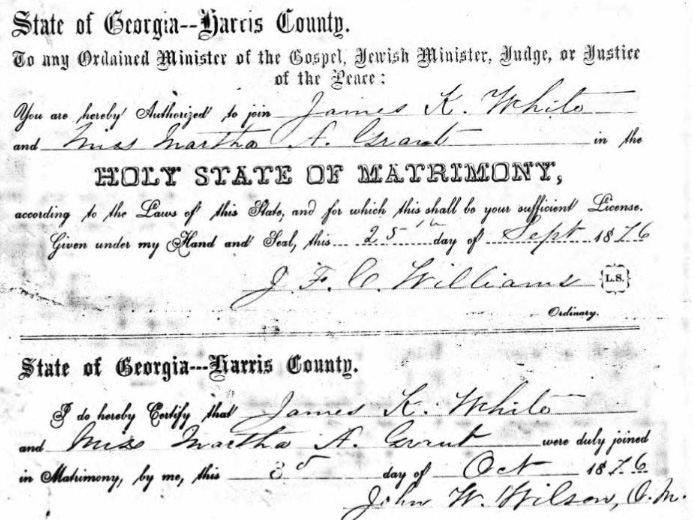 State of Georgia--Harris County.
To any Ordained Minister of the Gospel, Jewish Minister, Judge, or Justice
of the Peace:
You are hereby Authorized to join James K. White
and Miss Martha A. Grant in the
HOLY STATE OF MATRIMONY,
according to the Laws of this State, and for which this shall be your sufficient License.
Given under my Hand and Seal, this 25th day of Sept 1876
J. F. C. Williams L.S.
Ordinary.
State of Georgia---Harris County.
I do hereby Certify that James K. White
and Miss Martha A. Grant were duly joined
in Matrimony, by me, this day of Oct 1876
John W. Wilson, O.M.